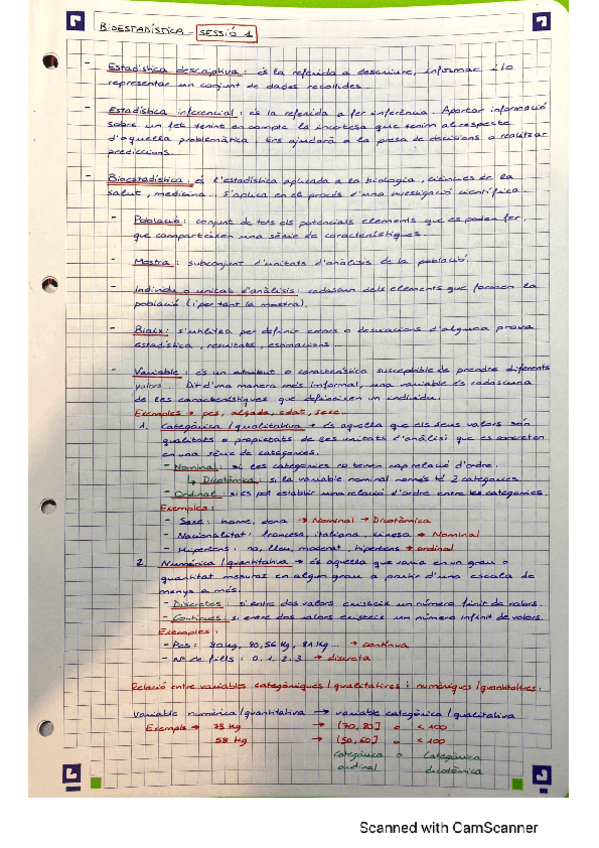 BIOESTADÍSTICA - SESSIÓ 1
- Estadística descriptiva: és la referida a descriure, informar i/o
representar un conjunt de dades recollides.
- Estadística inferencial: és la referida a fer inferència. Aportar informació
sobre un fet tenint en compte la incertesa que tenim al respecte
d'aquella problemàtica i ens ajudarà a la presa de decisions o realitzar
prediccions.
- Bioestadística: és l'estadística aplicada a la biologia, ciències de la
salut, medicina... S'aplica en el procés d'una investigació científica.
- Població: conjunt de tots els potencials elements que es poden fer
que comparteixen una sèrie de característiques.
- Mostra: subconjunt d'unitats d'anàlisis de la població.
- Individu o unitat d'anàlisis: cadascun dels elements que formen la
població (i per tant la mostra).
- Biaix: s'utilitza per definir errors o desviacions d'alguna prova
estadística, resultats, estimacions...
- Variable: és un atribut o característica susceptible de prendre diferents
valors. Dit d'una manera més informal, una variable és cadascuna
de les característiques que defineixen un individu.
Exemples → pes, alçada, edat, sexe...
1. Categòrica / qualitativa → és aquella que els seus valors són
qualitats o propietats de les unitats d'anàlisi que es concreten
en una sèrie de categories.
- Nominal: si les categories no tenen cap relació d'ordre.
↳ Dicotòmica: si la variable nominal només té 2 categories
- Ordinal: si es pot establir una relació d'ordre entre les categories.
Exemples:
- Sexe: home, dona → Nominal → Dicotòmica
- Nacionalitat: francesa, italiana, xinesa → Nominal
- Hipertens: no, lleu, moderat, hipertens → ordinal
2. Numèrica / quantitativa → és aquella que varia en un grau o
quantitat mesurat en algun grau a partir d'una escala de
menys a més.
- Discretes: si entre dos valors existeix un número finit de valors.
- Contínues: si entre dos valors existeix un número infinit de valors.
Exemples:
- Pes: 80kg, 80,56 Kg, 81 Kg... → contínua
- Nº de fills: 0, 1, 2, 3 → discreta
Relació entre variables categòriques / qualitatives i numèriques / quantitatives:
Variable numèrica / quantitativa → variable categòrica / qualitativa
Exemple → 75 Kg → [70, 80] o < 100
58 Kg → [50, 60] o < 100
categòrica o Categòrica
ordinal dicotòmica
Scanned with CamScanner